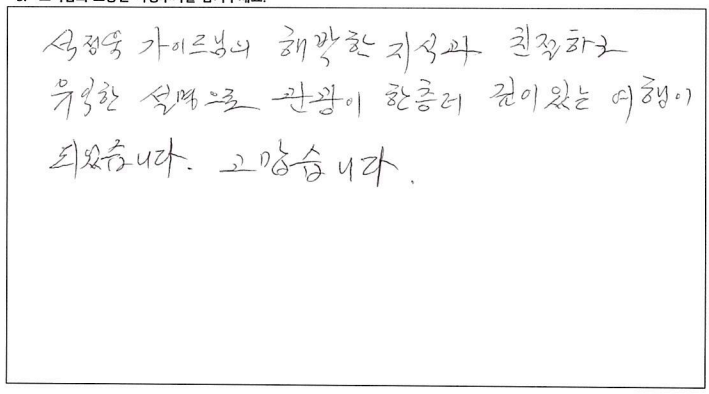 석정욱 가이드님의 해박한 지식과 친절하고
유익한 설명으로 관광이 한층더 깊이있는 여행이
되었습니다. 고맙습니다.